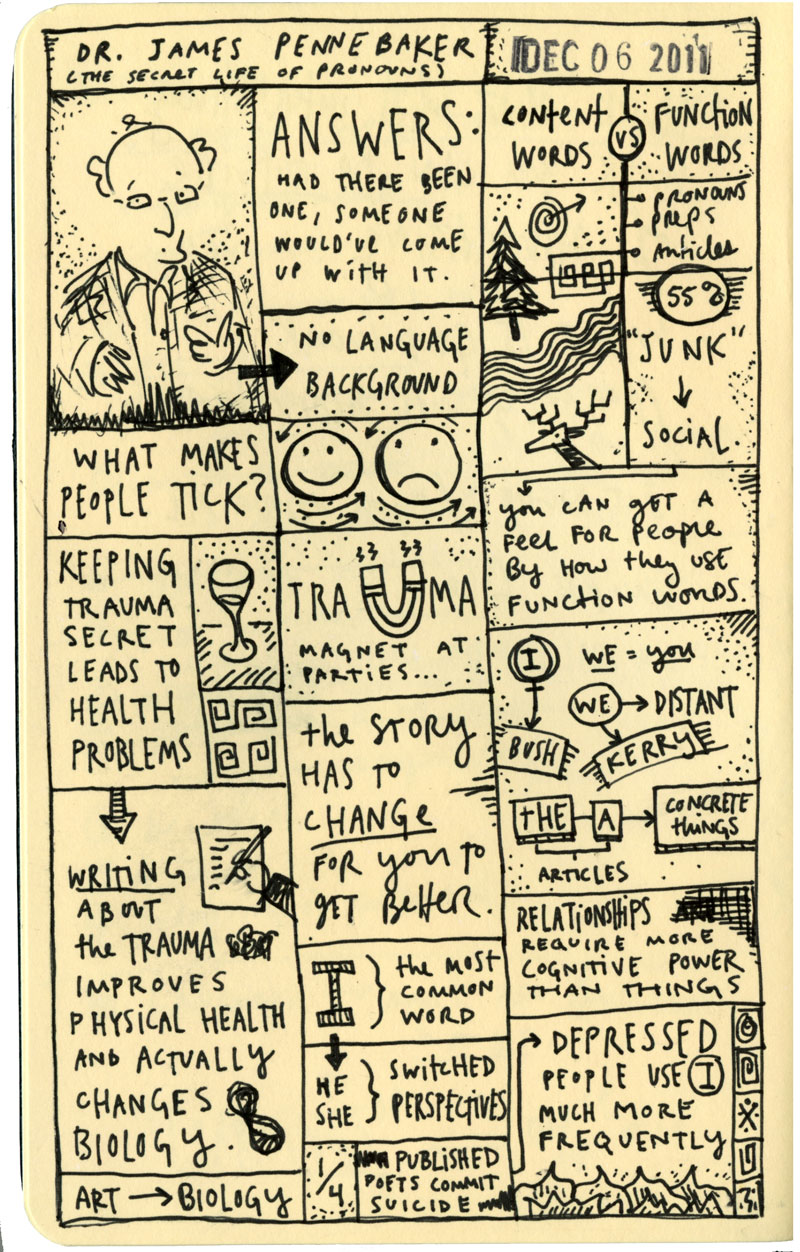 DR. JAMES PENNEBAKER
(THE SECRET LIFE OF PRONOUNS)
DEC 06 2011
ANSWERS:
HAD THERE BEEN
ONE, SOMEONE
WOULD'VE COME
UP WITH IT.
NO LANGUAGE
BACKGROUND
WHAT MAKES
PEOPLE TICK?
KEEPING
TRAUMA
SECRET
LEADS TO
HEALTH
PROBLEMS
TRAUMA
MAGNET AT
PARTIES...
WRITING
ABOUT
the TRAUMA
IMPROVES
PHYSICAL HEALTH
AND ACTUALLY
CHANGES
BIOLOGY.
ART → BIOLOGY
the STORY
HAS TO
CHANGE
FOR you TO
GET BETTER.
I } the MOST
COMMON
WORD
HE
SHE } SWITCHED
PERSPECTIVES
1/4 PUBLISHED
POETS COMMIT
SUICIDE
CONTENT
WORDS
VS
FUNCTION
WORDS
PRONOUNS
PREPS
ARTICLES
55%
"JUNK"
↓
SOCIAL
you CAN GET A
FEEL FOR PEOPLE
BY HOW they USE
FUNCTION WORDS.
I
BUSH
WE = you
WE → DISTANT
KERRY
THE A → CONCRETE
THINGS
ARTICLES
RELATIONSHIPS
REQUIRE MORE
COGNITIVE POWER
THAN THINGS
DEPRESSED
PEOPLE USE I
MUCH MORE
FREQUENTLY